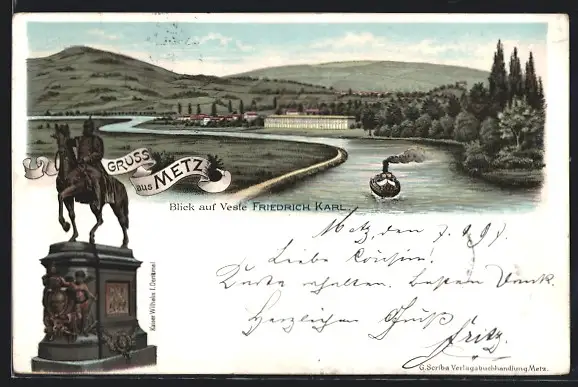 GRUSS
aus METZ
Blick auf Veste FRIEDRICH KARL.
Kaiser Wilhelm I. Denkmal
Metz, den 7. 98.
Liebe Cousine!
Karte erhalten. Besten Dank.
Herzlichen Gruß
Fritz.
G. Scriba Verlagsbuchhandlung, Metz.